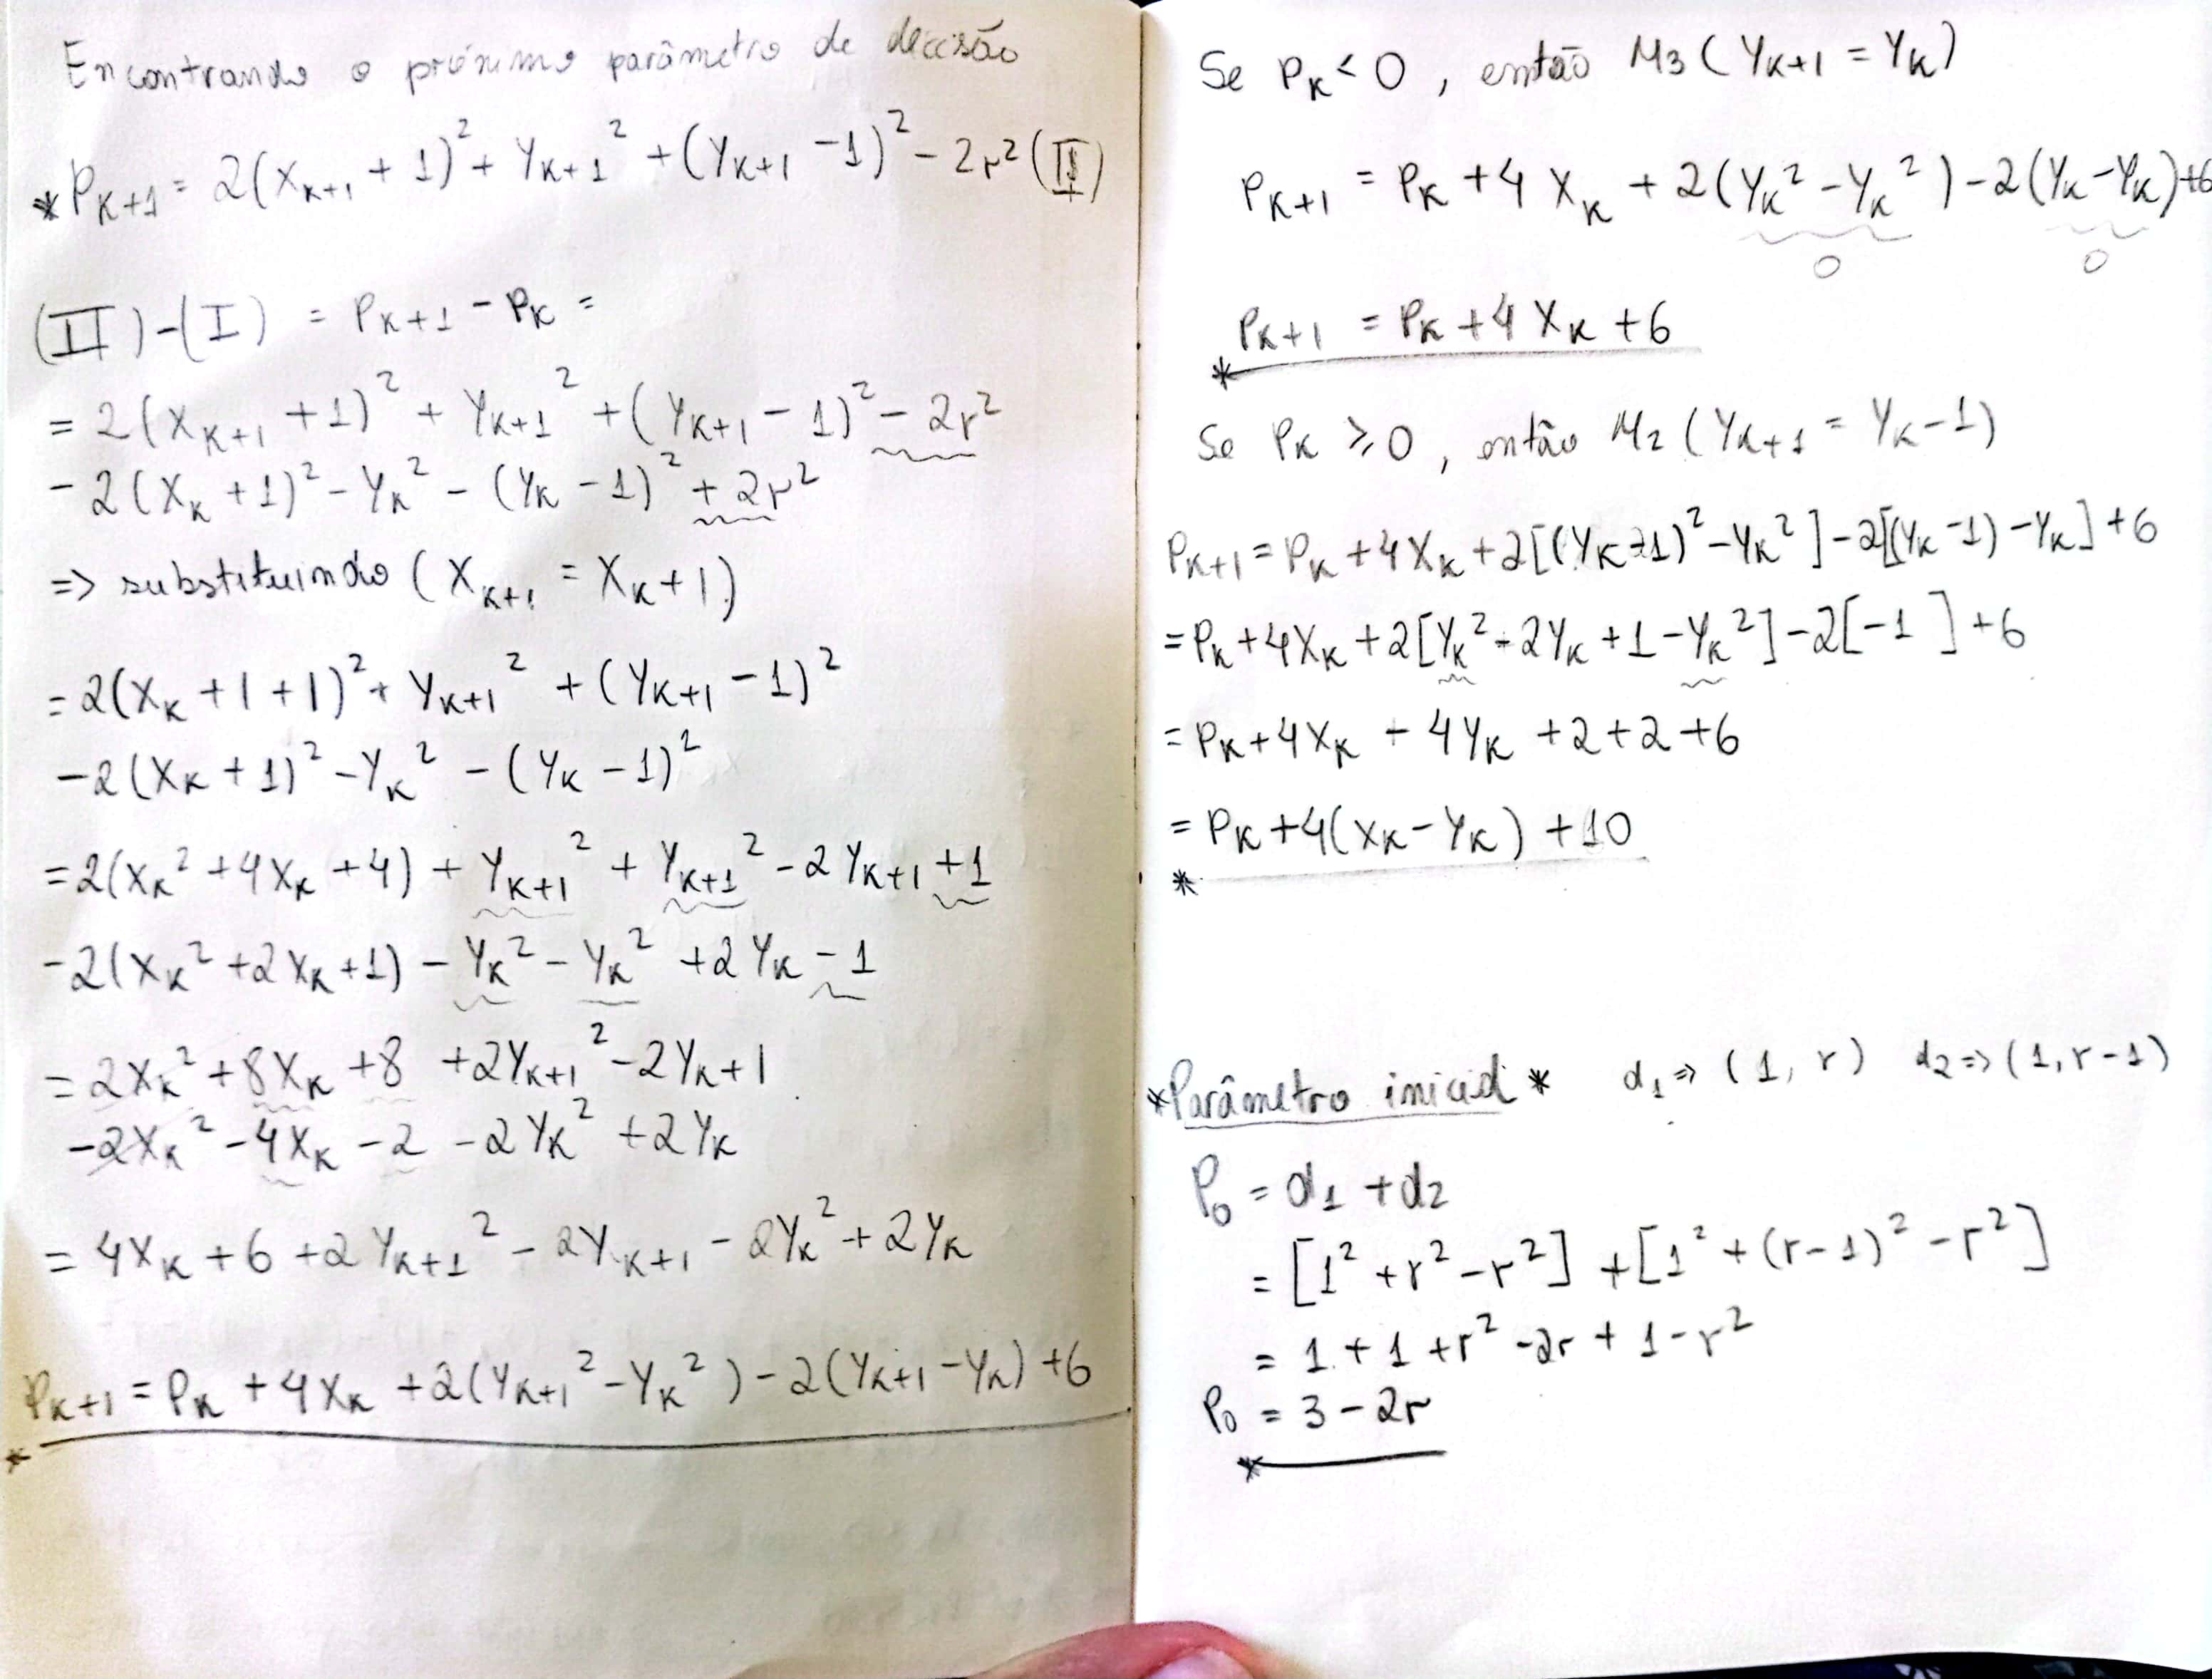 Encontrando o próximo parâmetro de decisão
* P_{K+1} = 2(X_{K+1} + 1)² + Y_{K+1}² + (Y_{K+1} - 1)² - 2r² (II)
(II) - (I) = P_{K+1} - P_K =
= 2(X_{K+1} + 1)² + Y_{K+1}² + (Y_{K+1} - 1)² - 2r²
- 2(X_K + 1)² - Y_K² - (Y_K - 1)² + 2r²
=> substituindo (X_{K+1} = X_K + 1)
= 2(X_K + 1 + 1)² + Y_{K+1}² + (Y_{K+1} - 1)²
- 2(X_K + 1)² - Y_K² - (Y_K - 1)²
= 2(X_K² + 4X_K + 4) + Y_{K+1}² + Y_{K+1}² - 2Y_{K+1} + 1
- 2(X_K² + 2X_K + 1) - Y_K² - Y_K² + 2Y_K - 1
= 2X_K² + 8X_K + 8 + 2Y_{K+1}² - 2Y_{K+1}
- 2X_K² - 4X_K - 2 - 2Y_K² + 2Y_K
= 4X_K + 6 + 2Y_{K+1}² - 2Y_{K+1} - 2Y_K² + 2Y_K
P_{K+1} = P_K + 4X_K + 2(Y_{K+1}² - Y_K²) - 2(Y_{K+1} - Y_K) + 6
*
Se P_K < 0, então M3 (Y_{K+1} = Y_K)
P_{K+1} = P_K + 4X_K + 2(Y_K² - Y_K²) - 2(Y_K - Y_K) + 6
0 0
P_{K+1} = P_K + 4X_K + 6
*
Se P_K ≥ 0, então M2 (Y_{K+1} = Y_K - 1)
P_{K+1} = P_K + 4X_K + 2[(Y_K - 1)² - Y_K²] - 2[(Y_K - 1) - Y_K] + 6
= P_K + 4X_K + 2[Y_K² - 2Y_K + 1 - Y_K²] - 2[-1] + 6
= P_K + 4X_K - 4Y_K + 2 + 2 + 6
= P_K + 4(X_K - Y_K) + 10
*
* Parâmetro inicial * d₁ => (1, r) d₂ => (1, r - 1)
P₀ = d₁ + d₂
= [1² + r² - r²] + [1² + (r - 1)² - r²]
= 1 + 1 + r² - 2r + 1 - r²
P₀ = 3 - 2r
*